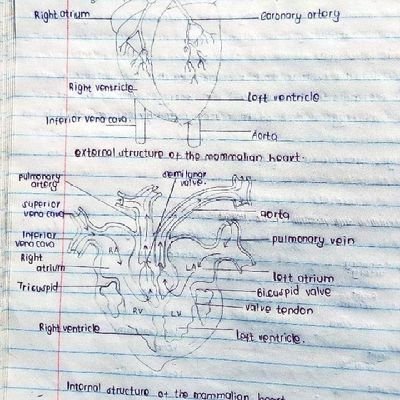 Right atrium
Coronary artery
Right ventricle
Left ventricle
Inferior vena cava
Aorta
external structure of the mammalian heart.
pulmonary artery
semilunar valve.
superior vena cava
aorta
Inferior vena cava
pulmonary vein
RA
LA
Right atrium
left atrium
Tricuspid
Bicuspid valve
valve tendon
RV
LV
Right ventricle
Left ventricle.
Internal structure of the mammalian heart